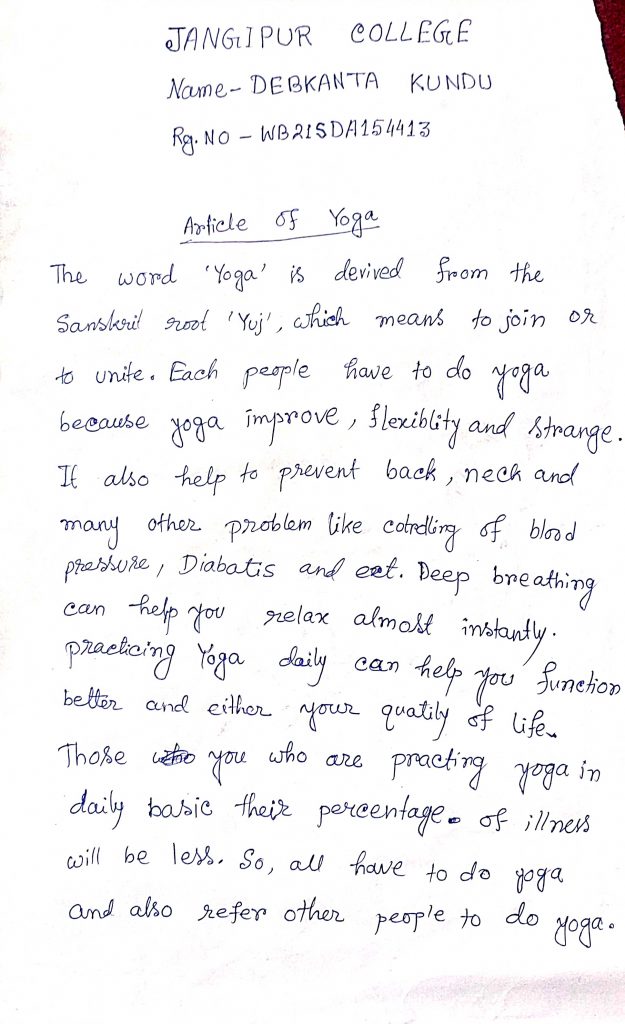 JANGIPUR COLLEGE
Name - DEBKANTA KUNDU
Rg. NO - WB21SDA154413
Article of Yoga
The word 'Yoga' is devived from the
Sanskrit root 'Yuj', which means to join or
to unite. Each people have to do yoga
because yoga improve, flexiblity and strange.
It also help to prevent back, neck and
many other problem like cotrolling of blood
pressure, Diabatis and ect. Deep breathing
can help you relax almost instantly.
practicing Yoga daily can help you function
better and either your quatily of life.
Those you who are practing yoga in
daily basic their percentage of illness
will be less. So, all have to do yoga
and also refer other people to do yoga.